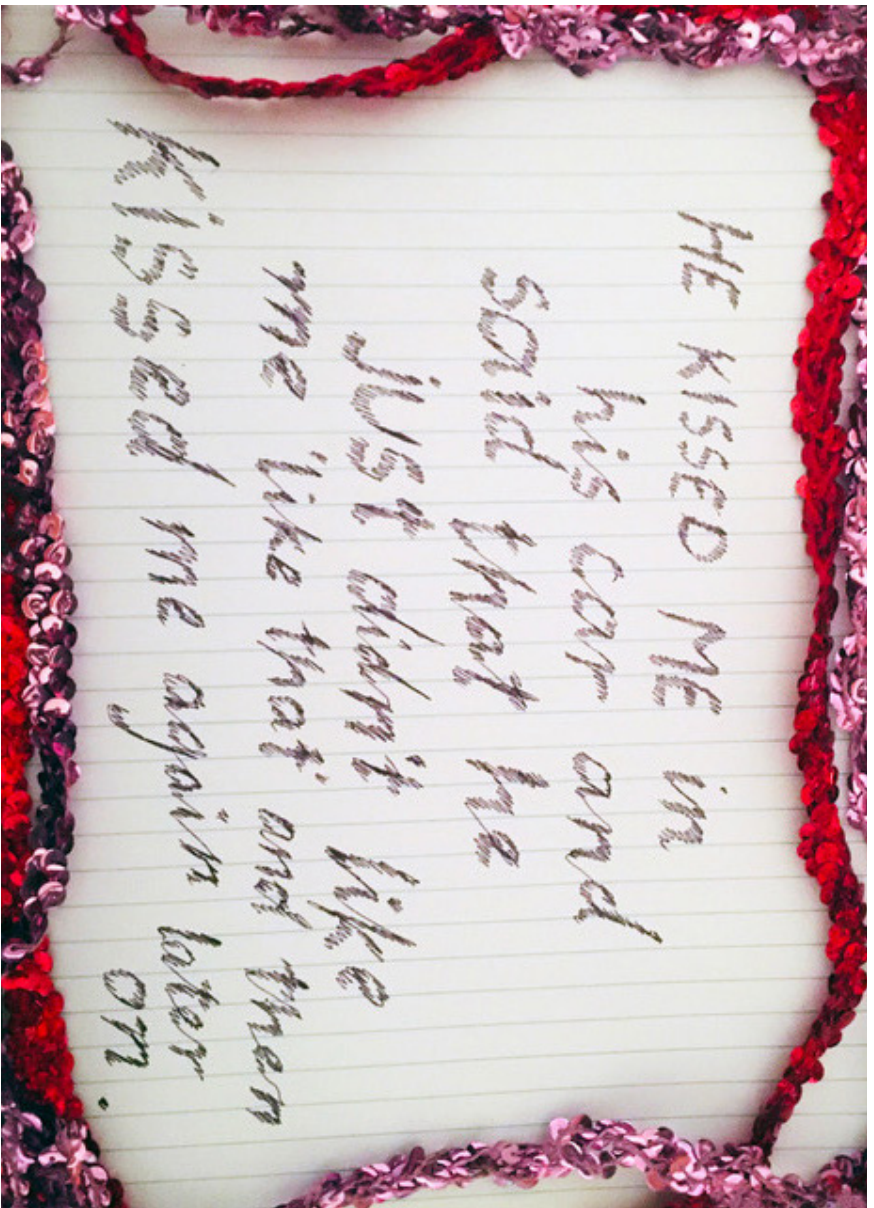 HE KISSED ME in
his car and
said that he
just didn't like
me 'like that' and then
kissed me again later
on.